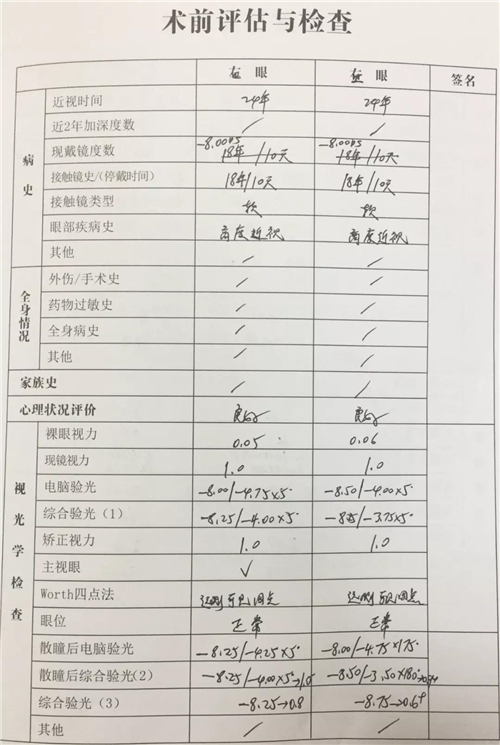 术前评估与检查
右 眼 左 眼 签名
病史
近视时间 24年 24年
近2年加深度数 / /
现戴镜度数 -8.00DS -8.00DS
18年/10天 18年/10天
接触镜史/(停戴时间) 18年/10天 18年/10天
接触镜类型 软 软
眼部疾病史 高度近视 高度近视
其他 / /
全身情况
外伤/手术史 / /
药物过敏史 / /
全身病史 / /
其他 / /
家族史 / /
心理状况评价 良好 良好
视光学检查
裸眼视力 0.05 0.06
现镜视力 1.0 1.0
电脑验光 -8.00/-4.75×5° -8.50/-4.00×5°
综合验光(1) -8.25/-4.00×5° /-3.75×5°
矫正视力 1.0 1.0
主视眼 √
Worth四点法 远测 四点 远测 四点
眼位 正常 正常
散瞳后电脑验光 -8.25/-4.25×5° -8.00/-4.75×175°
散瞳后综合验光(2) -8.25/-4.00×5°→1.0 -8.50/-3.50×180°
综合验光(3) -8.25→0.8 -8.75→0.6+
其他 / /